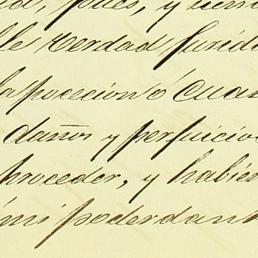 pues, y
de verdad, jurid
la posecion ó cua
daños y perjuicio
proceder, y habién
mi poderdant